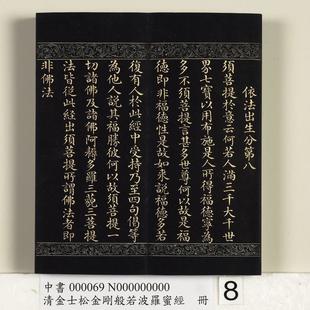 依法出生分第八
須菩提於意云何若人滿三千大千世
界七寶以用布施是人所得福德寧為
多不須菩提言甚多世尊何以故是福
德即非福德性是故如來說福德多若
復有人於此經中受持乃至四句偈等
為他人說其福勝彼何以故須菩提一
切諸佛及諸佛阿耨多羅三藐三菩提
法皆從此經出須菩提所謂佛法者即
非佛法
中書 000069 N000000000
清金士松金剛般若波羅蜜經 冊
8